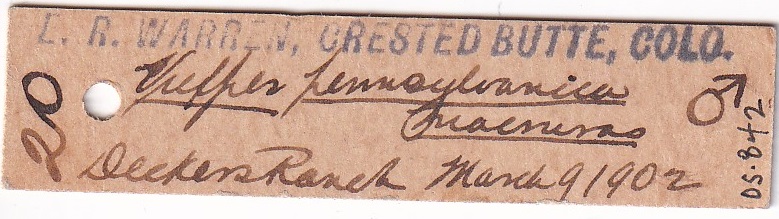 E. R. WARREN, CRESTED BUTTE, COLO.
20
Vulpes pennsylvanica ♂
macruras
Deckers Ranch March 9 1902
05.842